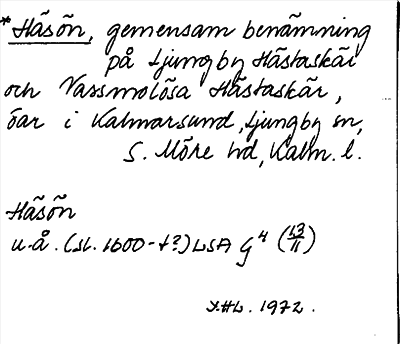 * Häsön, gemensam benämning
på Ljungby Hästaskär
och Vassmolösa Hästaskär,
öar i Kalmarsund, Ljungby sn,
S. Möre hd, Kalm. l.
Häsön
u.å. (sl. 1600-t?) LSA G4 (13/11)
1972.